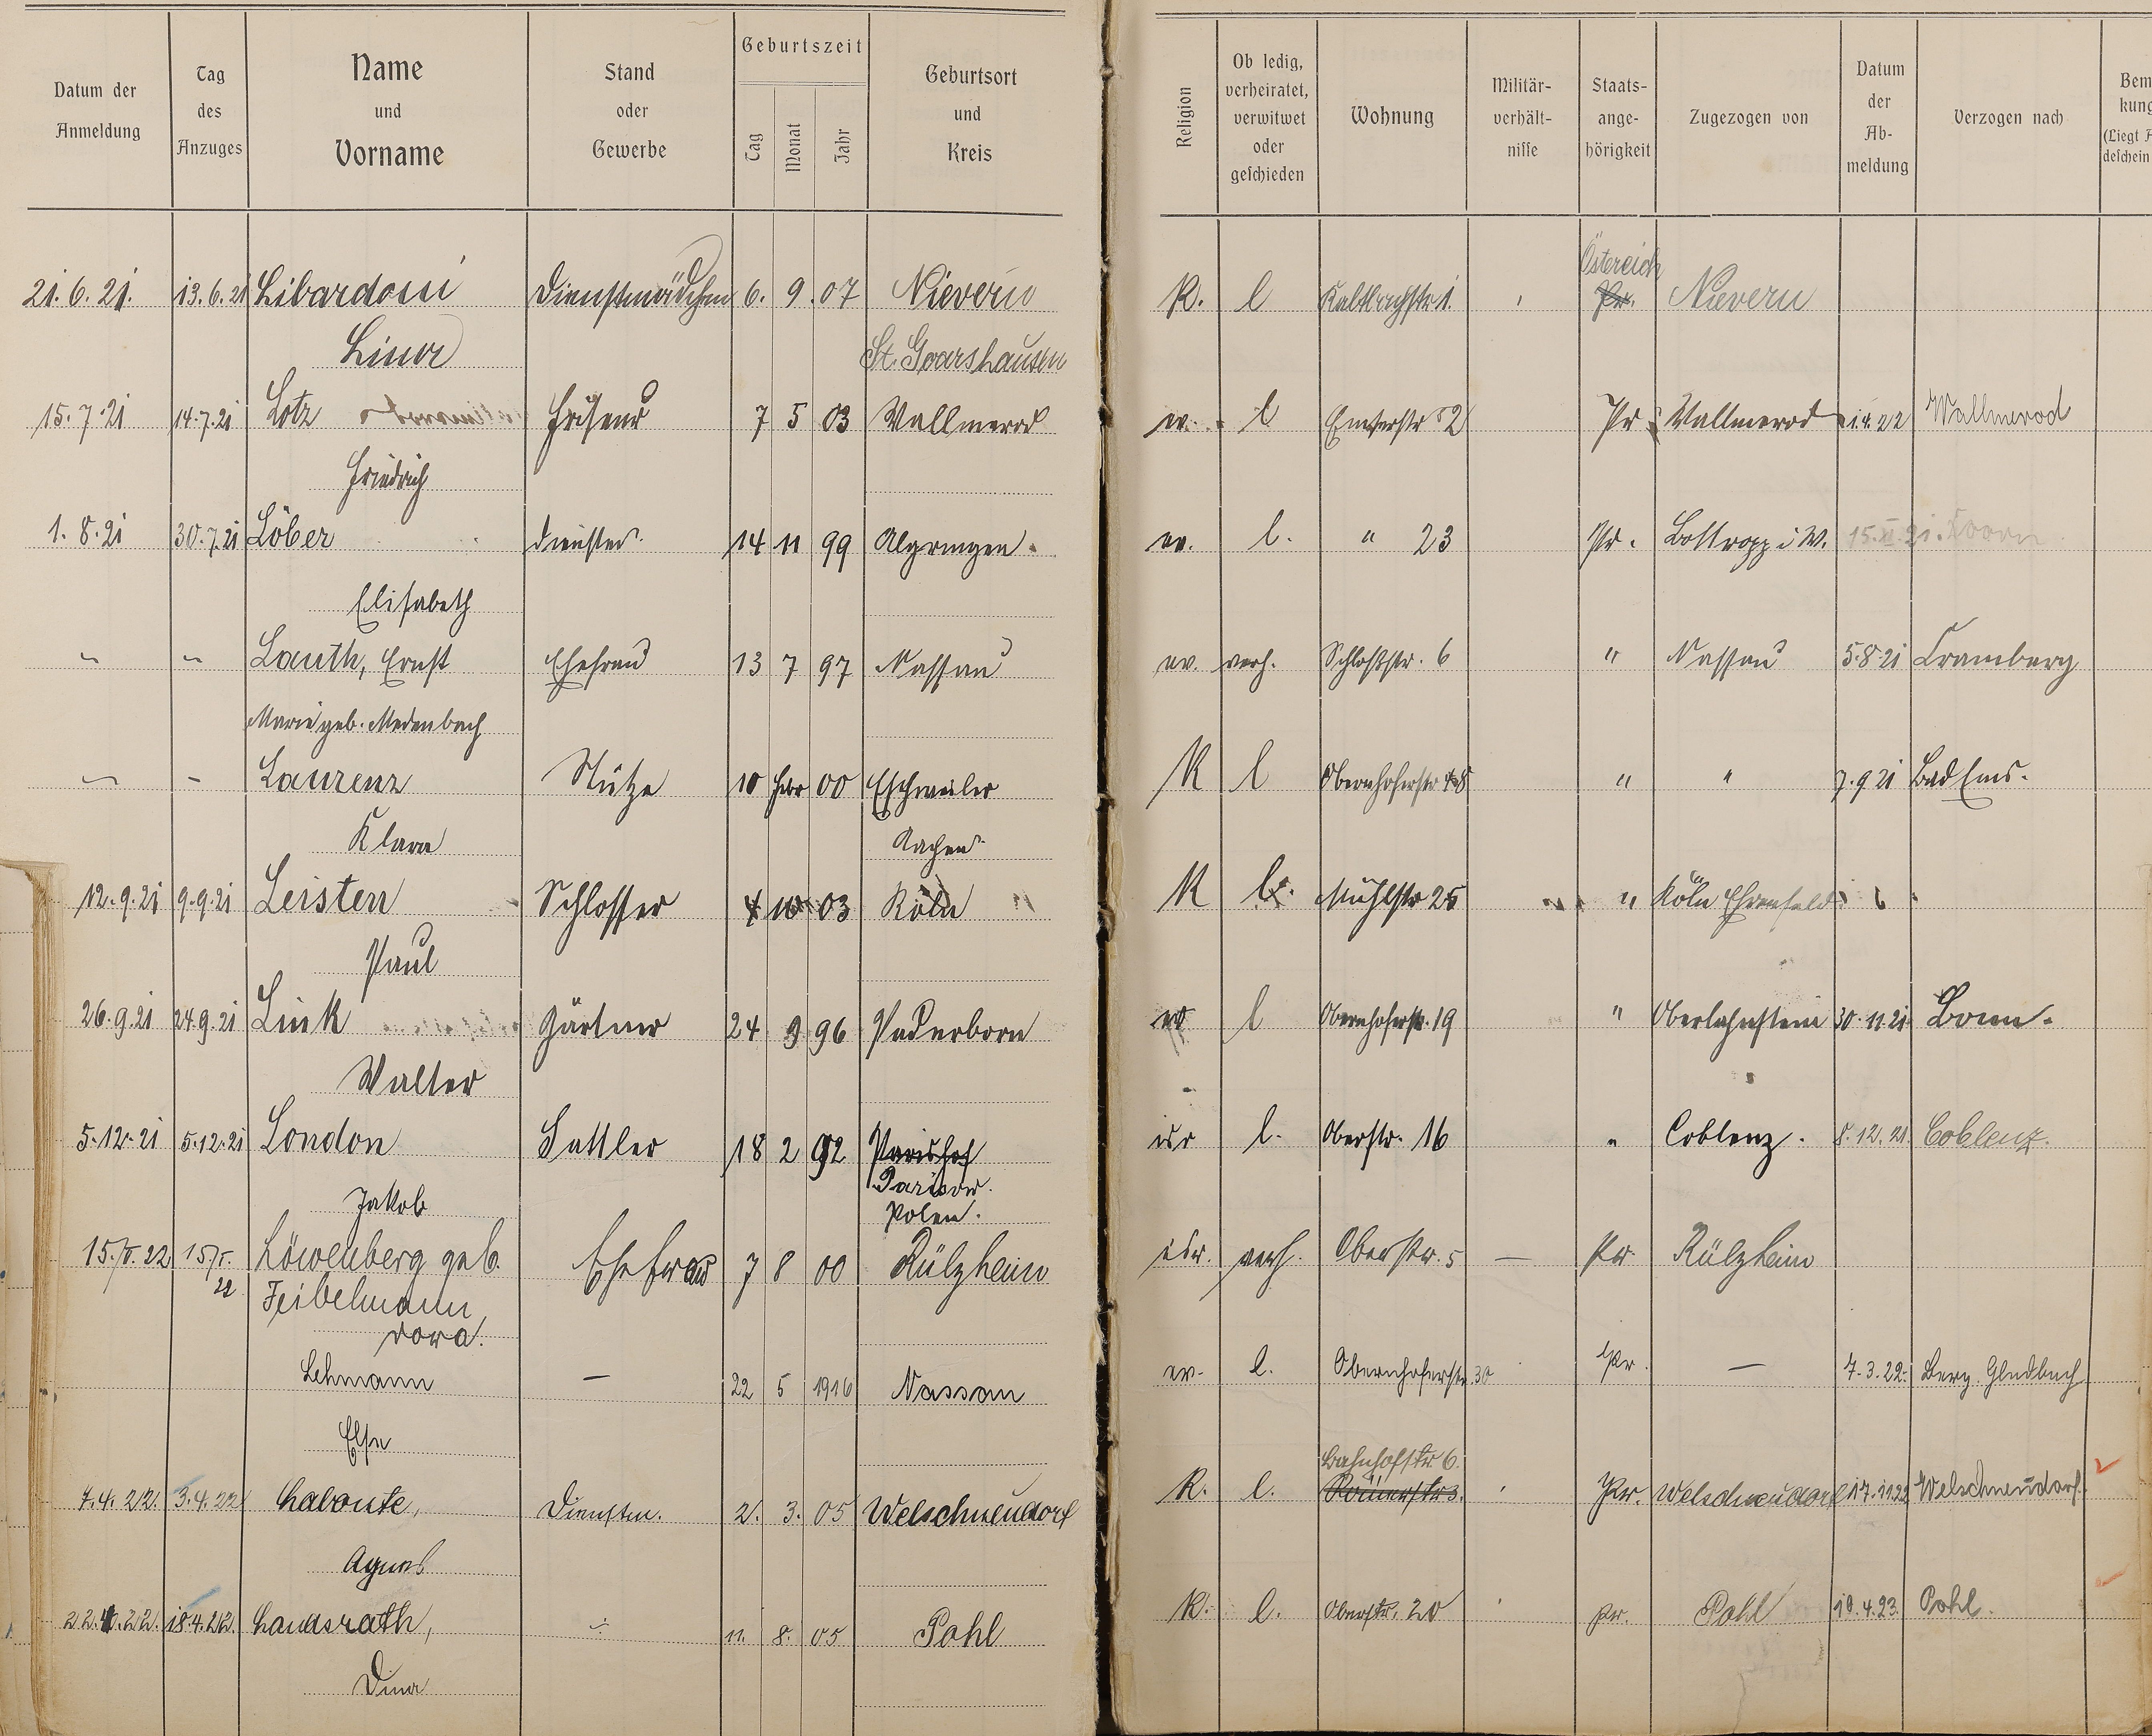 Datum der Anmeldung | Tag des Anzuges | Name und Vorname | Stand oder Gewerbe | Geburtszeit Tag Monat Jahr | Geburtsort und Kreis | Religion | Ob ledig, verheiratet, verwitwet oder geschieden | Wohnung | Militär-verhält-nisse | Staats-ange-hörigkeit | Zugezogen von | Datum der Ab-meldung | Verzogen nach
Östereich
21.6.21. 13.6.21 Libardoni Dienstmädchen 6. 9. 07 Nievern K. l Kaltbachstr 1. Pr. Nievern
Lina St. Goarshausen
15.7.21 14.7.21 Lotz Friseur 7 5 03 Wallmerod ev. l Emserstr 2 Pr Wallmerod 1.4.22 Wallmerod
Friedrich
1.8.21 30.7.21 Löber Dienstm. 14 11 99 Algringen ev. l. " 23 Pr. Bottropp i W. 15.XI.21.
Elisabeth
" " Lauth, Ernst Ehefrau 13 7 97 Nassau ev. verh. Schloßstr. 6 " Nassau 5.8.21 Cramberg
Marie geb. Medenbach
" - Laurenz Stütze 10 Febr 00 Eschweiler K l Obernhoferstr " " 7.9 21 Bad Ems.
Klara Aachen
12.9.21 9.9.21 Leisten Schlosser 4 10 03 Köln K l. Mühlstr 25 " Köln Ehrenfeld
Paul
26.9.21 24.9.21 Link Gärtner 24 9 96 Paderborn ev l Obernhoferstr. 19 " Oberlahnstein 30.11.21 Bonn.
Walter
5.12.21 5.12.21 London Sattler 18 2 92 isr l. Oberstr. 16 " Coblenz. 8.12.21. Coblenz.
Parisow.
Jakob Polen.
15./5.22 15/5. Löwenberg geb. Ehefrau 7 8 00 Rülzheim isr. verh. Oberstr. 5 — Pr. Rülzheim
22 Feibelmann
Dora.
Lehmann — 22 5 1916 Nassau ev. l. Obernhoferstr 30 Pr. — 7.3.22. Berg. Gladbach
Else
Bahnhofstr. 6.
7.4.22. 3.4.22 Labonte, Dienstm. 2. 3. 05 Welschneudorf K. l. Römerstr 3. Pr. Welschneudorf 17.11.22 Welschneudorf.
Agnes
22.4.22. 18.4.22. Landsrath, 11. 8. 05 Pohl K. l. Oberstr. 20 Pr. Pohl 19.4.23. Pohl.
Dina